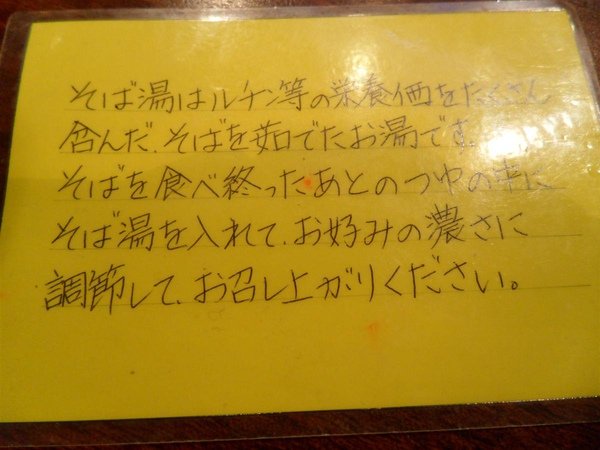 そば湯はルチン等の栄養価をたくさん
含んだ、そばを茹でたお湯です。
そばを食べ終ったあとのつゆの中に
そば湯を入れて、お好みの濃さに
調節して、お召し上がりください。